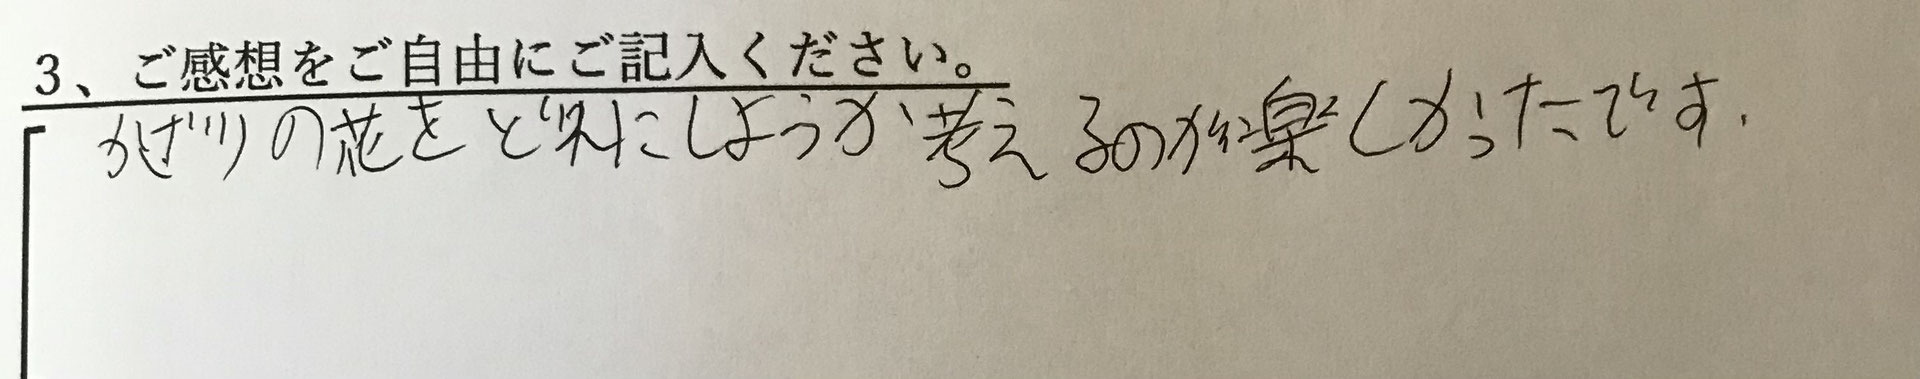 3、ご感想をご自由にご記入ください。
かざりの花をどれにしようか考えるのが楽しかったです.